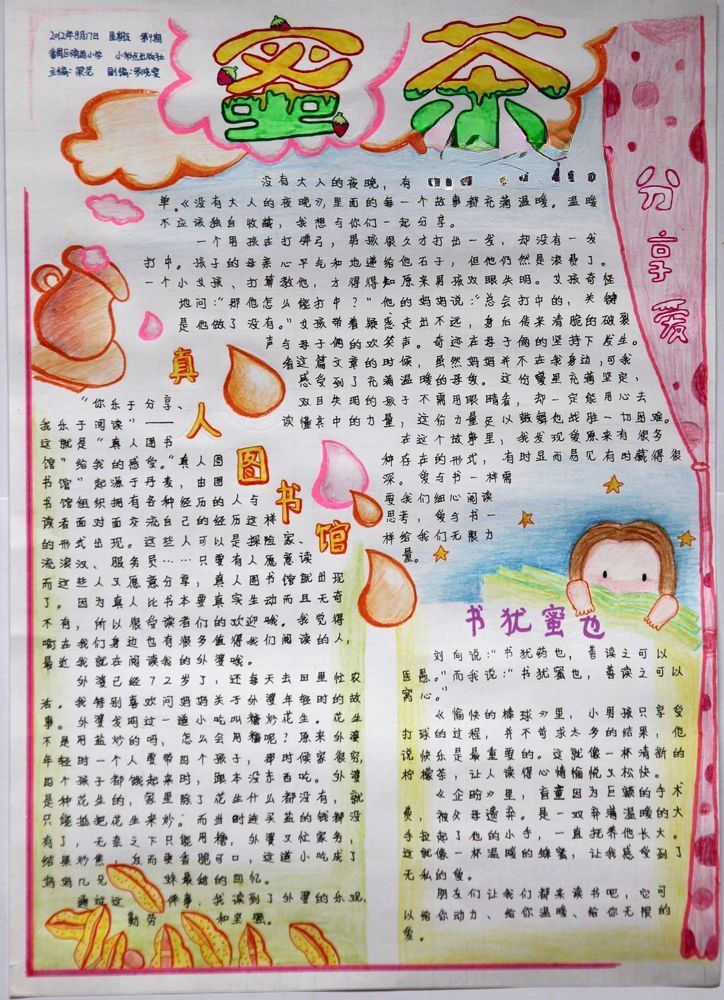 2012年9月17日 星期五 第9期
小学 小 出版社
主编:梁艺 副编:罗晓雯
蜜茶
分享爱
没有大人的夜晚,有
单。《没有大人的夜晚》,里面的每一个故事都充满温暖。温暖
不应该独自收藏,我想与你们一起分享。
一个男孩在打弹弓,男孩很久才打出一发,却没有一发
打中。孩子的母亲心平气和地递给他石子,但他仍然是浪费了。
一个小女孩、打算教他,才得知原来男孩双眼失明。女孩奇怪
地问:“那他怎么能打中?”他的妈妈说:“总会打中的,关键
是他做了没有。”女孩带着疑惑走出不远,身后传来清脆的破裂
声与母子俩的欢笑声。奇迹在母子俩的坚持下发生。
看这篇文章的时候,虽然妈妈并不在我身边,可我
感受到了充满温暖的母爱。这份爱里充满坚定,
双目失明的孩子不需用眼睛看,却一定能用心去
读懂其中的力量,这份力量足以鼓舞他战胜一切困难。
在这个故事里,我发现爱原来有很多
种存在的形式,有时显而易见有时藏得很
深。爱与书一样需
要我们细心阅读
思考,爱与书一
样给我们无限力
量。
真人图书馆
“你乐于分享、
我乐于阅读”——
这就是“真人图书
馆”给我的感受。“真人图
书馆”起源于丹麦,由图
书馆组织拥有各种经历的人与
读者面对面交流自己的经历这样
的形式出现。这些人可以是探险家、
流浪汉、服务员……只要有人愿意读
而这些人又愿意分享,真人图书馆就出现
了。因为真人比书本要真实生动而且无奇
不有,所以很受读者们的欢迎哦。我觉得
啊在我们身边也有很多值得我们阅读的人,
最近我就在阅读我的外婆哦。
外婆已经72岁了,还每天去田里忙农
活。我特别喜欢问妈妈关于外婆年轻时的故
事。外婆发明过一道小吃叫糖炒花生。花生
不是用盐炒的吗,怎么会用糖呢?原来外婆
年轻时一个人要带四个孩子,那时候家很穷,
四个孩子都饿起来时,跟本没东西吃。外婆
是种花生的,家里除了花生什么都没有,就
只能拔把花生来炒。而当时连买盐的钱都没
有了,无奈之下只能用糖,外婆又忙家务,
结果炒焦 反而更香脆可口,这道小吃成了
妈妈几兄 妹最甜的回忆。
通过这 件事,我读到了外婆的乐观、
勤劳 和坚强。
书犹蜜也
刘向说:“书犹药也,善读之可以
医愚。”而我说:“书犹蜜也,善读之可以
窝心。”
《愉快的棒球》里,小男孩只享受
打球的过程,并不苛求太多的结果,他
说快乐是最重要的。这就像一杯清新的
柠檬茶,让人读得心情愉悦又松快。
《企盼》里,盲童因为巨额的手术
费,被父母遗弃。是一双充满温暖的大
手拉起了他的小手,一直抚养他长大。
这就像一杯温暖的蜂蜜,让我感受到了
无私的爱。
朋友们让我们都来读书吧,它可
以给你动力、给你温暖、给你无限的
爱。